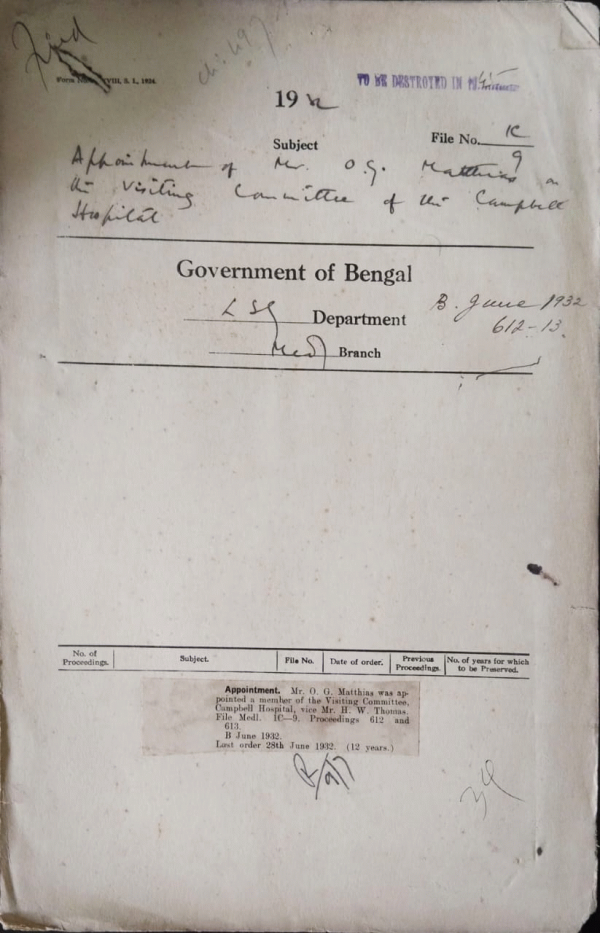 Find
Form No. XVIII, S. I., 1924.
TO BE DESTROYED IN 19
1932
Subject
File No. 1C
9
Appointment of Mr. O. G. Matthias on
the Visiting Committee of the Campbell
Hospital
Government of Bengal
L S G Department
B. June 1932
612-13.
Medl Branch
No. of Proceedings. Subject. File No. Date of order. Previous Proceedings. No. of years for which to be Preserved.
Appointment. Mr. O. G. Matthias was ap-
pointed a member of the Visiting Committee,
Campbell Hospital, vice Mr. H. W. Thomas.
File Medl. 1C—9. Proceedings 612 and
613.
B June 1932.
Last order 28th June 1932. (12 years.)